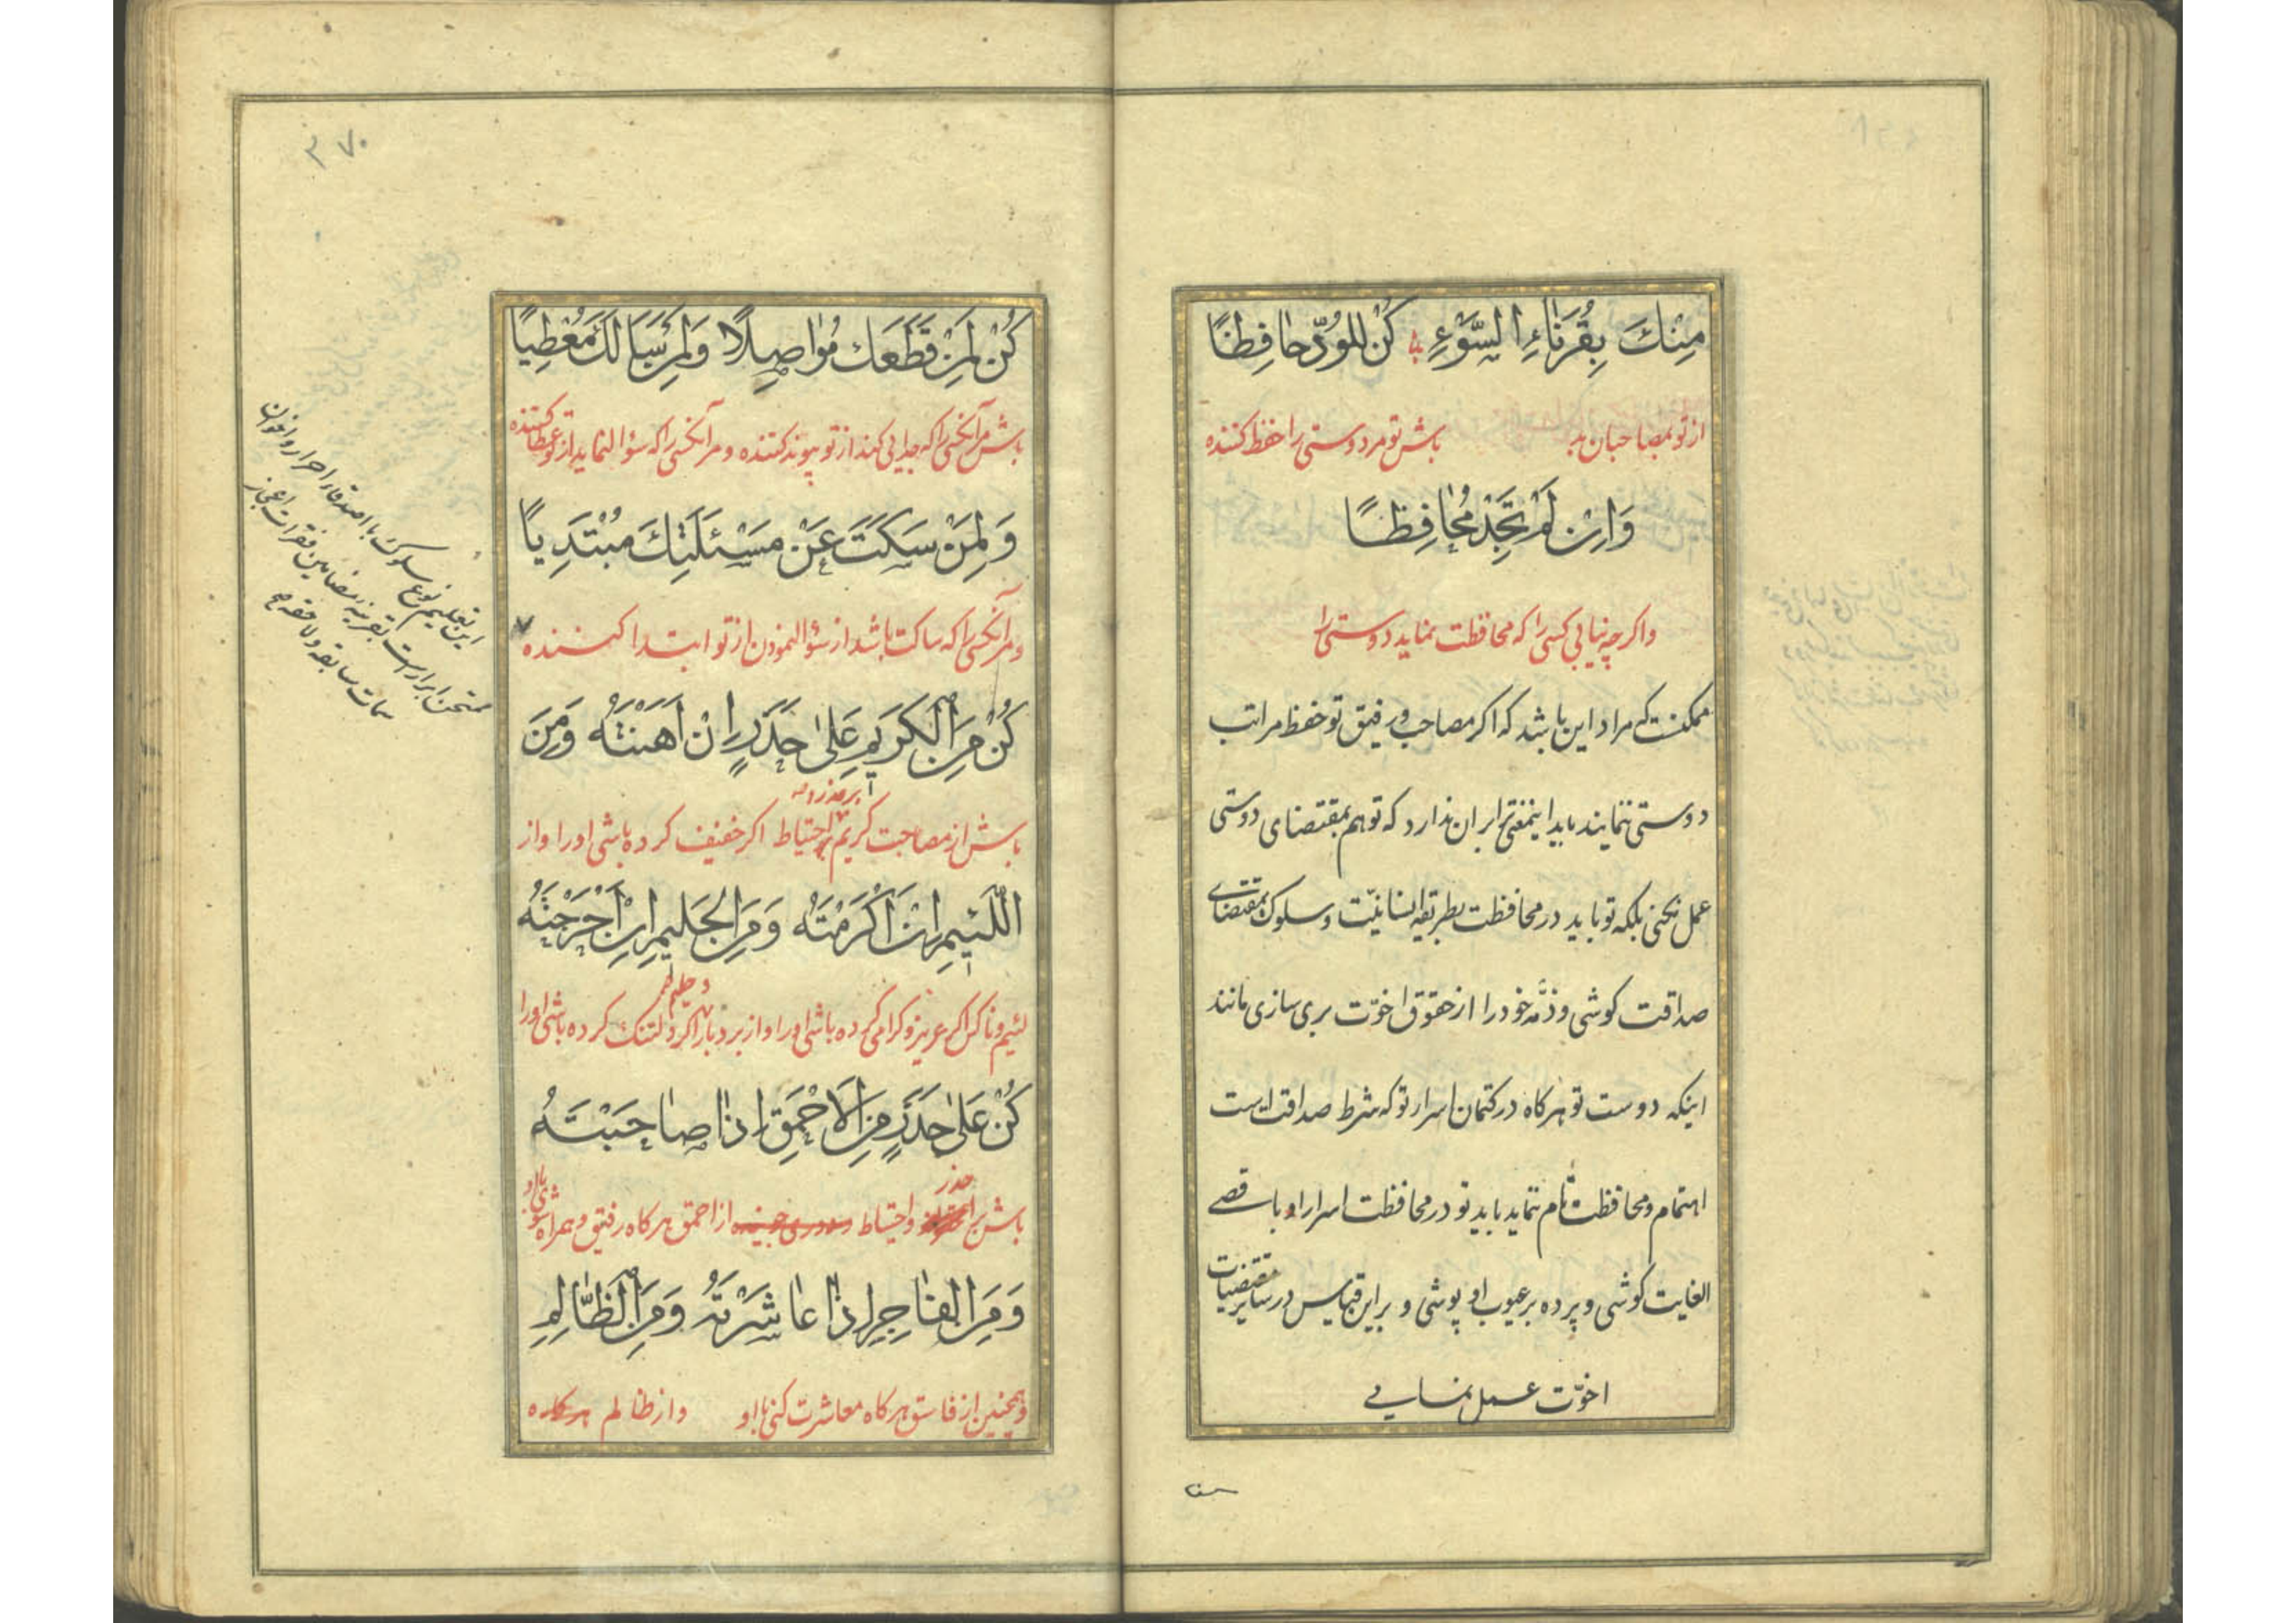 مِنْكَ بِقُرَنٰاءِ السَّوْءِ كُنْ لِلْوُدِّ حٰافِظًا
از تو بمصاحبان بد باش تو مر دوستی را حفظ کننده
وَاِنْ لَمْ تَجِدْ مُحٰافِظًا
واکر چه نیابی کسی را که محافظت نماید دوستی را
ممکنست که مراد این باشد که اکر مصاحب و رفیق تو حفظ مراتب
دوستی ننمایند باید اینمعنی ترا بران ندارد که تو هم بمقتضای دوستی
عمل نکنی بلکه تو باید در محافظت بطریقه انسانیّت و سلوک بمقتضای
صداقت کوشی و ذمّه خود را از حقوق اخوّت بری سازی مانند
اینکه دوست تو هرکاه در کتمان اسرار تو که شرط صداقت است
اهتمام و محافظت تام ننماید باید تو در محافظت اسرار او باقصی
الغایت کوشی و پرده بر عیوب او پوشی و براین قیاس در سایر مقتضیات
اخوّت عمل نمایی
۳۷۰
كُنْ لِمَنْ قَطَعَكَ مُوٰاصِلًا وَلِمَنْ سَئَلَكَ مُعْطِيًا
باش مر آنکسی را که جدایی کند از تو پیوند کننده و مر آنکسی را که سؤال نماید از تو عطا کننده
وَلِمَنْ سَكَتَ عَنْ مَسْئَلَتِكَ مُبْتَدِيًا
و مر آنکسی را که ساکت باشد از سؤال نمودن از تو ابتدا کننده
كُنْ مِنَ الْكَرِيمِ عَلىٰ حَذَرٍ اِنْ اَهَنْتَهُ وَمِنَ
بر حذر و
باش از مصاحبت کریم باحتیاط اکر خفیف کرده باشی او را و از
اللَّئِيمِ اِنْ اَكْرَمْتَهُ وَمِنَ الْحَلِيمِ اِنْ اَحْرَجْتَهُ
و حلیم
لئیم و ناکس اکر عزیز و کرامی کرده باشی او را و از بردبار اکر دلتنک کرده باشی او را
كُنْ عَلىٰ حَذَرٍ مِنَ الْاَحْمَقِ اِذٰا صٰاحَبْتَهُ
حذر
باش بر و احتیاط از احمق هرکاه رفیق و همراه شوی با او
وَمِنَ الْفٰاجِرِ اِذٰا عٰاشَرْتَهُ وَمِنَ الظّٰالِمِ
و همچنین از فاسق هرکاه معاشرت کنی با او و از ظالم هرکاه
این تعلیم نوع سلوک با اصدقاء احرار و اخوان
ممتحن ابرار است بقرینه مضامین فقرات اعجاز
سمات سابقه و لاحقه